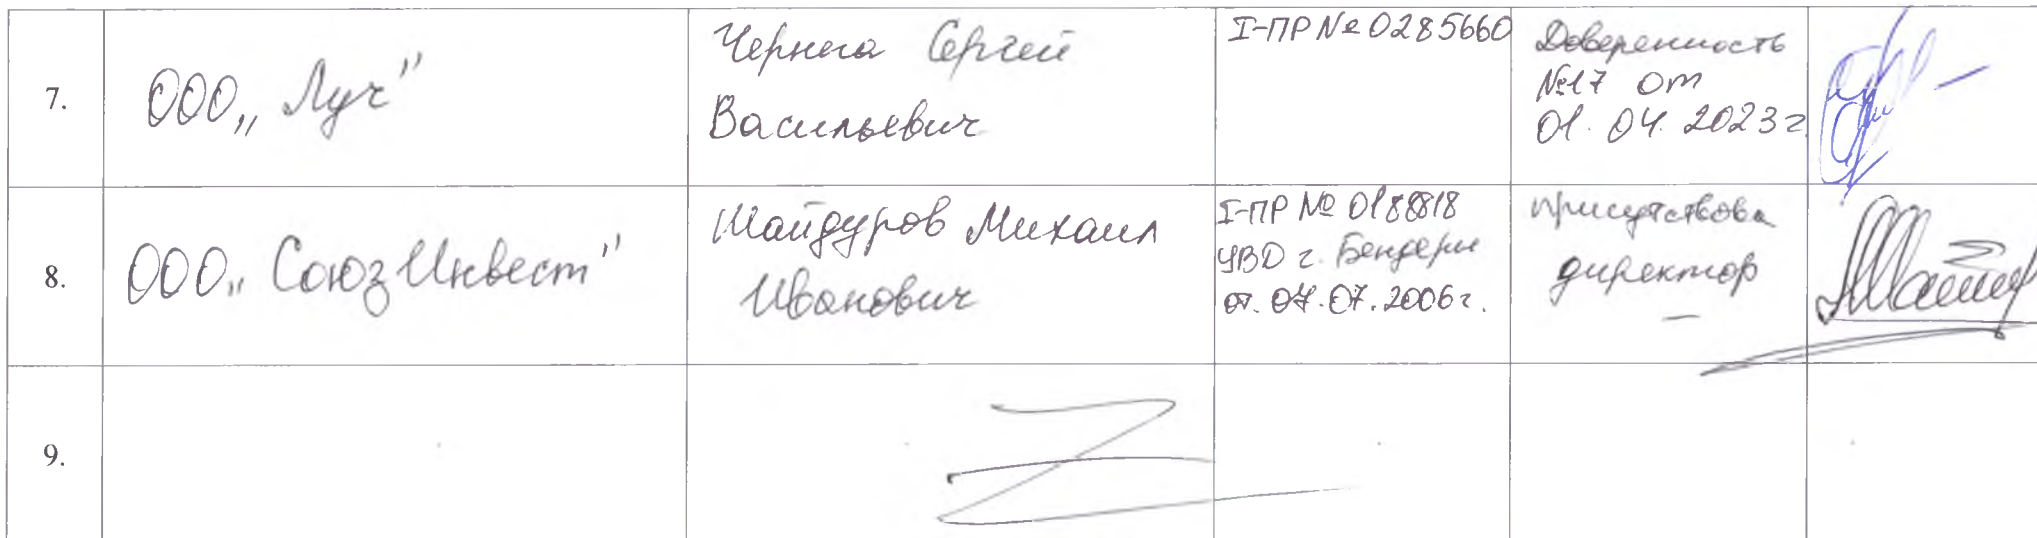 7.
ООО „Луч"
Чернега Сергей
Васильевич
I-ПР № 0285660
Доверенность
№17 от
01.04.2023г
8.
ООО „СоюзИнвест"
Шайдуров Михаил
Иванович
I-ПР № 0188818
УВД г. Бендеры
от. 07.07.2006г.
присутствова
директор
9.